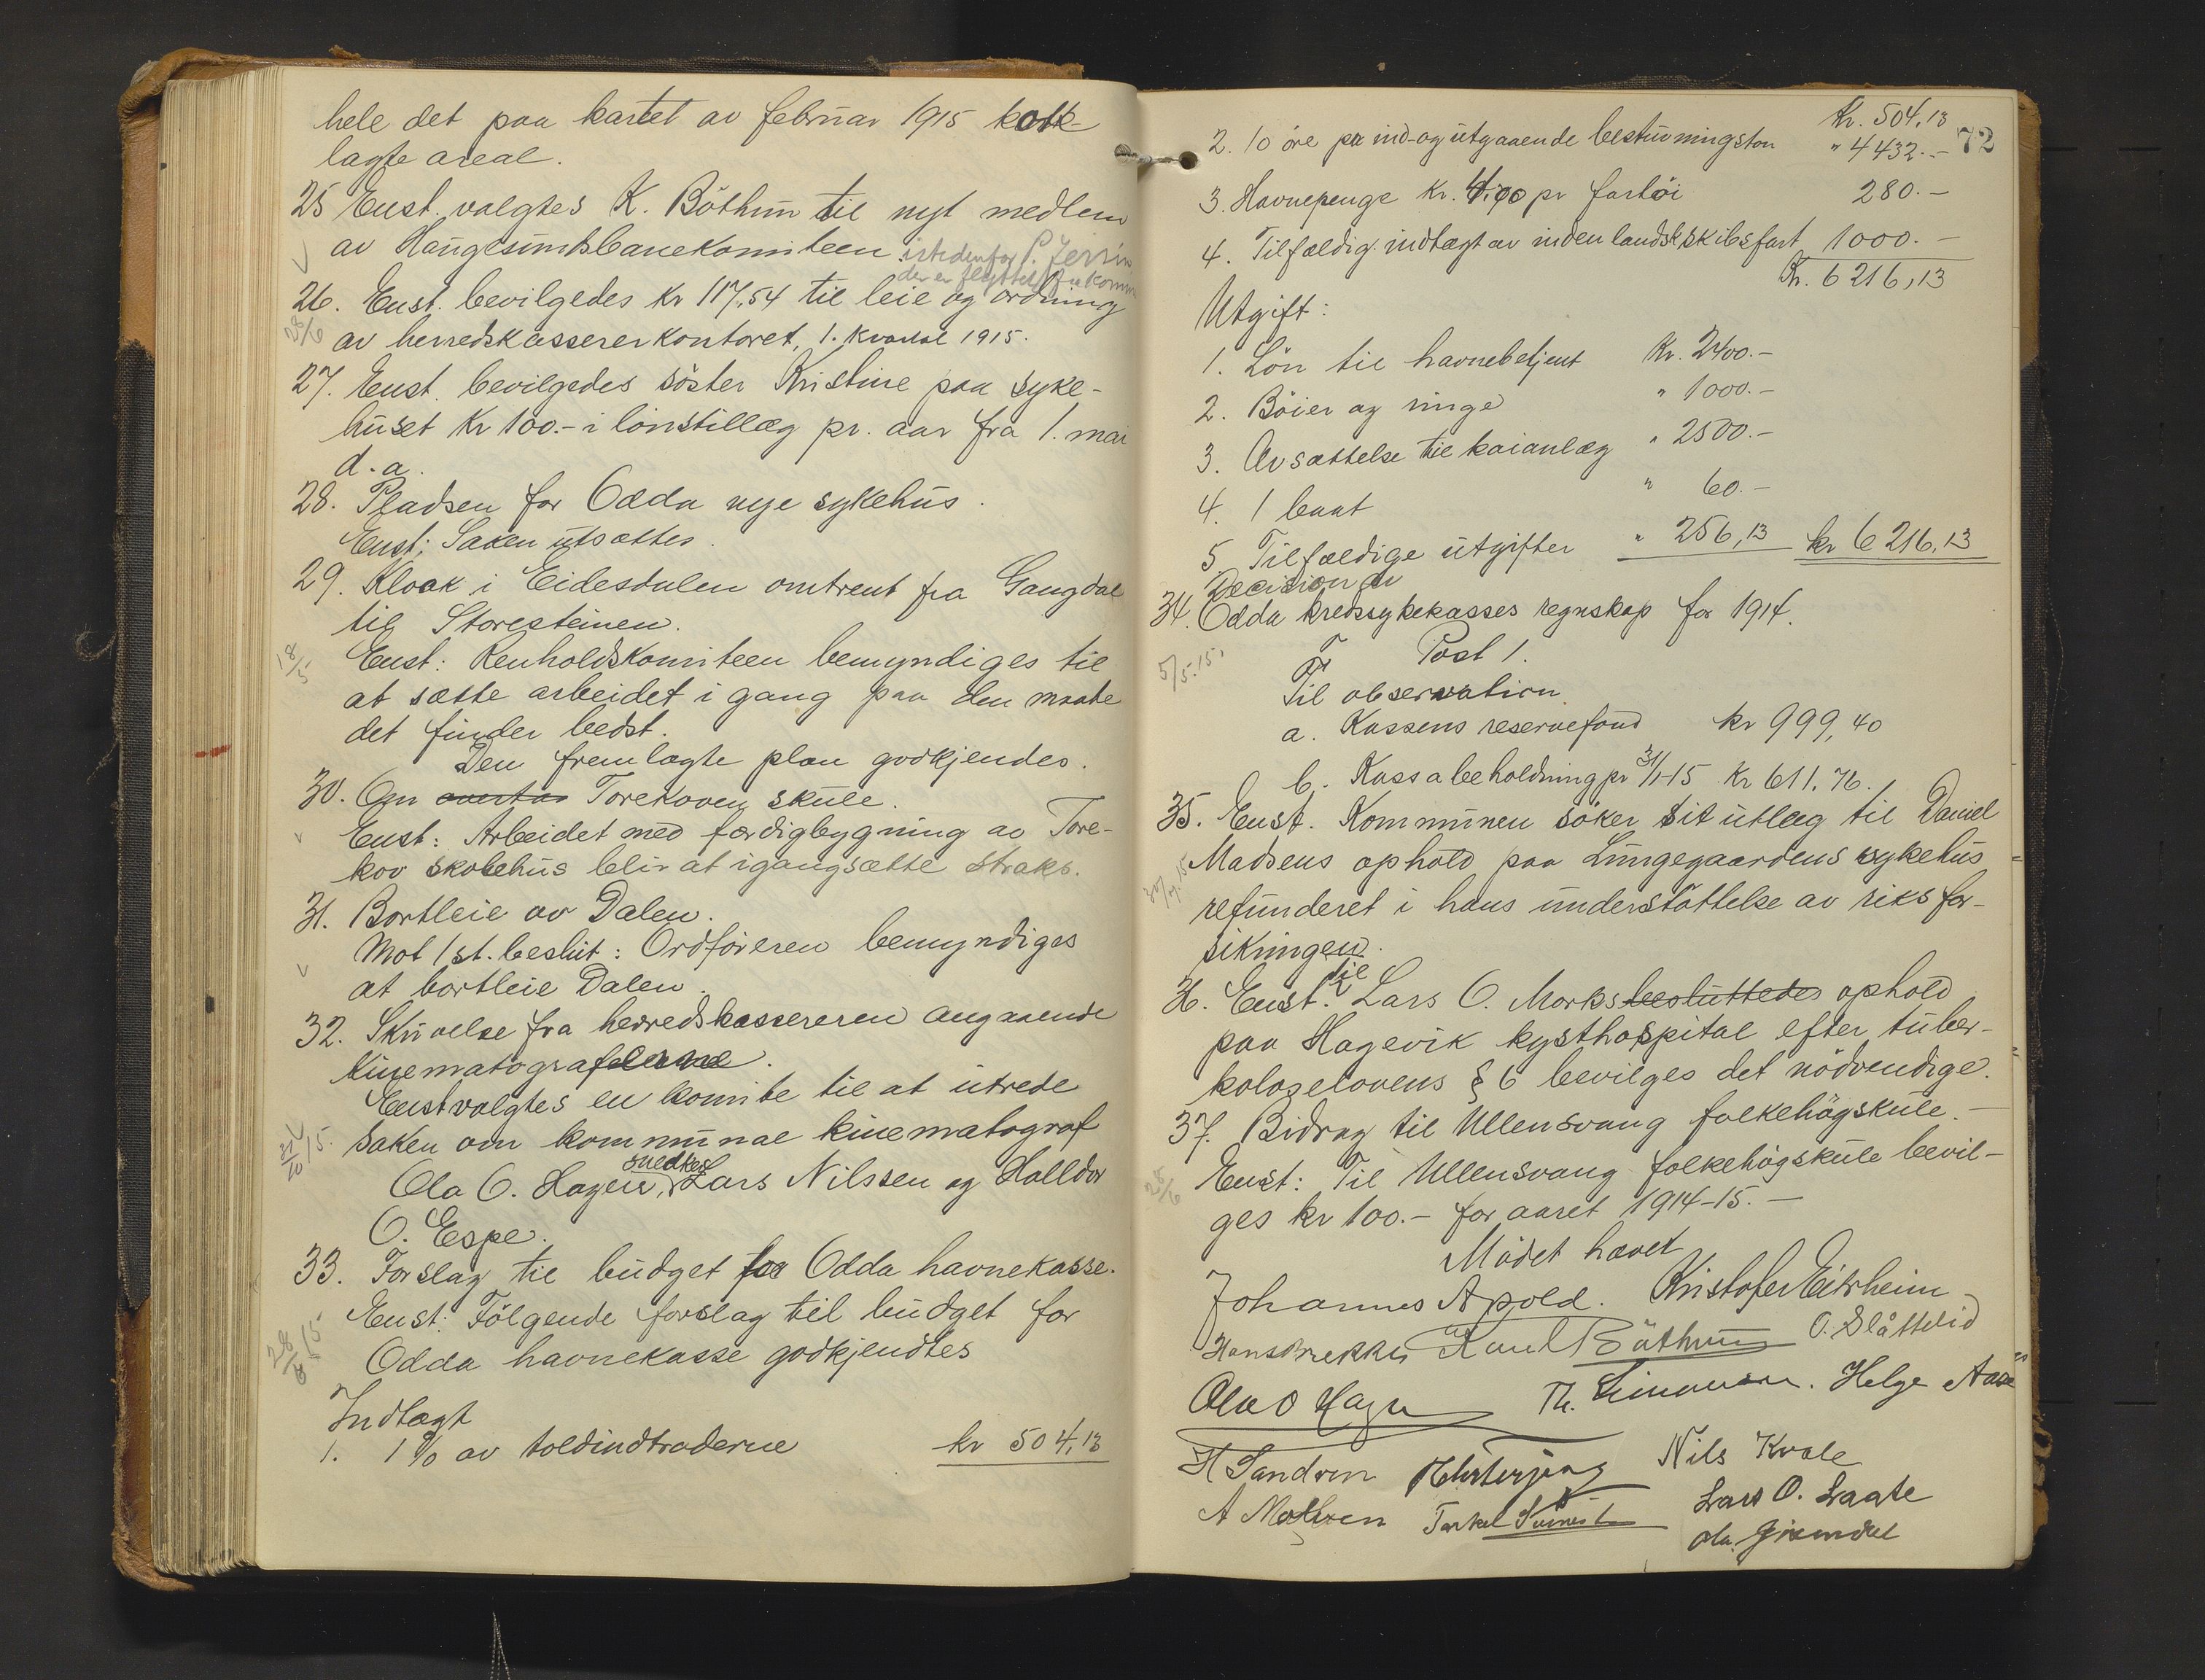 hele det paa kartet av februar 1915
lagte areal.
25 Enst. valgtes K. Böthun til nyt medlem
av Haugesundsbanekomiteen istedenfor P.
der er flyttet fra komm
26. Enst. bevilgedes kr 117,54 til leie og ordning
28/6
av herredskassererkontoret, 1. kvartal 1915.
27. Enst. bevilgedes söster Kristine paa syke-
huset kr 100.- i lönstillæg pr. aar fra 1. mai
d.a.
28. Pladsen for Odda nye sykehus.
Enst: Saken utsættes.
29. Kloak i Eidesdalen omtrent fra Gangdal
til Storesteinen.
18/5
Enst: Renholdskomiteen bemyndiges til
at sætte arbeidet i gang paa den maate
det finder bedst.
Den fremlagte plan godkjendes.
30. Om Torekoven skule.
Enst: Arbeidet med færdigbygning av Tore-
kov skolehus blir at igangsætte straks.
31. Bortleie av Dalen.
Mot 1 st. beslut: Ordföreren bemyndiges
at bortleie Dalen.
32. Skrivelse fra herredskassereren angaaende
kinematograferne.
Enst valgtes en komite til at utrede
saken om kommunal kinematograf
Ola O. Hagen, snedker Lars Nilssen og Halldor
O. Espe.
33. Forslag til budget for Odda havnekasse.
Enst: Fölgende forslag til budget for
Odda havnekasse godkjendtes
Indtægt
1. 1% av toldindtraderne kr 504,13
72
Kr. 504,13
2. 10 öre pa ind- og utgaaende bestuvningston " 4432.-
3. Havnepenge Kr. 4,00 pr fartöi 280.-
4. Tilfældig indtægt av indenlandsk skibsfart 1000.-
Kr. 6216,13
Utgift:
1. Lön til havnebetjent Kr. 2400.-
2. Böier og ringe " 1000.-
3. Avsættelse til kaianlæg " 2500.-
4. 1 baat " 60.-
5. Tilfældige utgifter " 256,13 kr 6216,13
Decision av
34. Odda kredssykekasses regnskap for 1914.
5/5.15.
Post 1.
Til observation.
a. Kassens reservefond kr 999,40
b. Kassabeholdning pr 31/1-15 kr 611,76.
35. Enst. Kommunen söker sit utlæg til Daniel
Madsens ophold paa Lungegaardens sykehus
refunderet i hans understöttelse av riksfor-
sikringen.
36. Enst. til Lars O. Morks besluttedes ophold
paa Hagevik kysthospital efter tuber-
koloselovens § 6 bevilges det nödvendige.
37. Bidrag til Ullensvang folkehögskule.-
25/6
Enst: Til Ullensvang folkehögskule bevil-
ges kr 100.- for aaret 1914-15.-
Mödet hævet
Johannes Apold. Kristofer Eitrheim
Hans Prekke Knut Böthun O. Slåttelid
Olav O Hagen Th. Simonsen. Helge Aase
H Sandven Nils Kvale
A Mathre Torkel Lars O. Laate
Ola. Grøndal